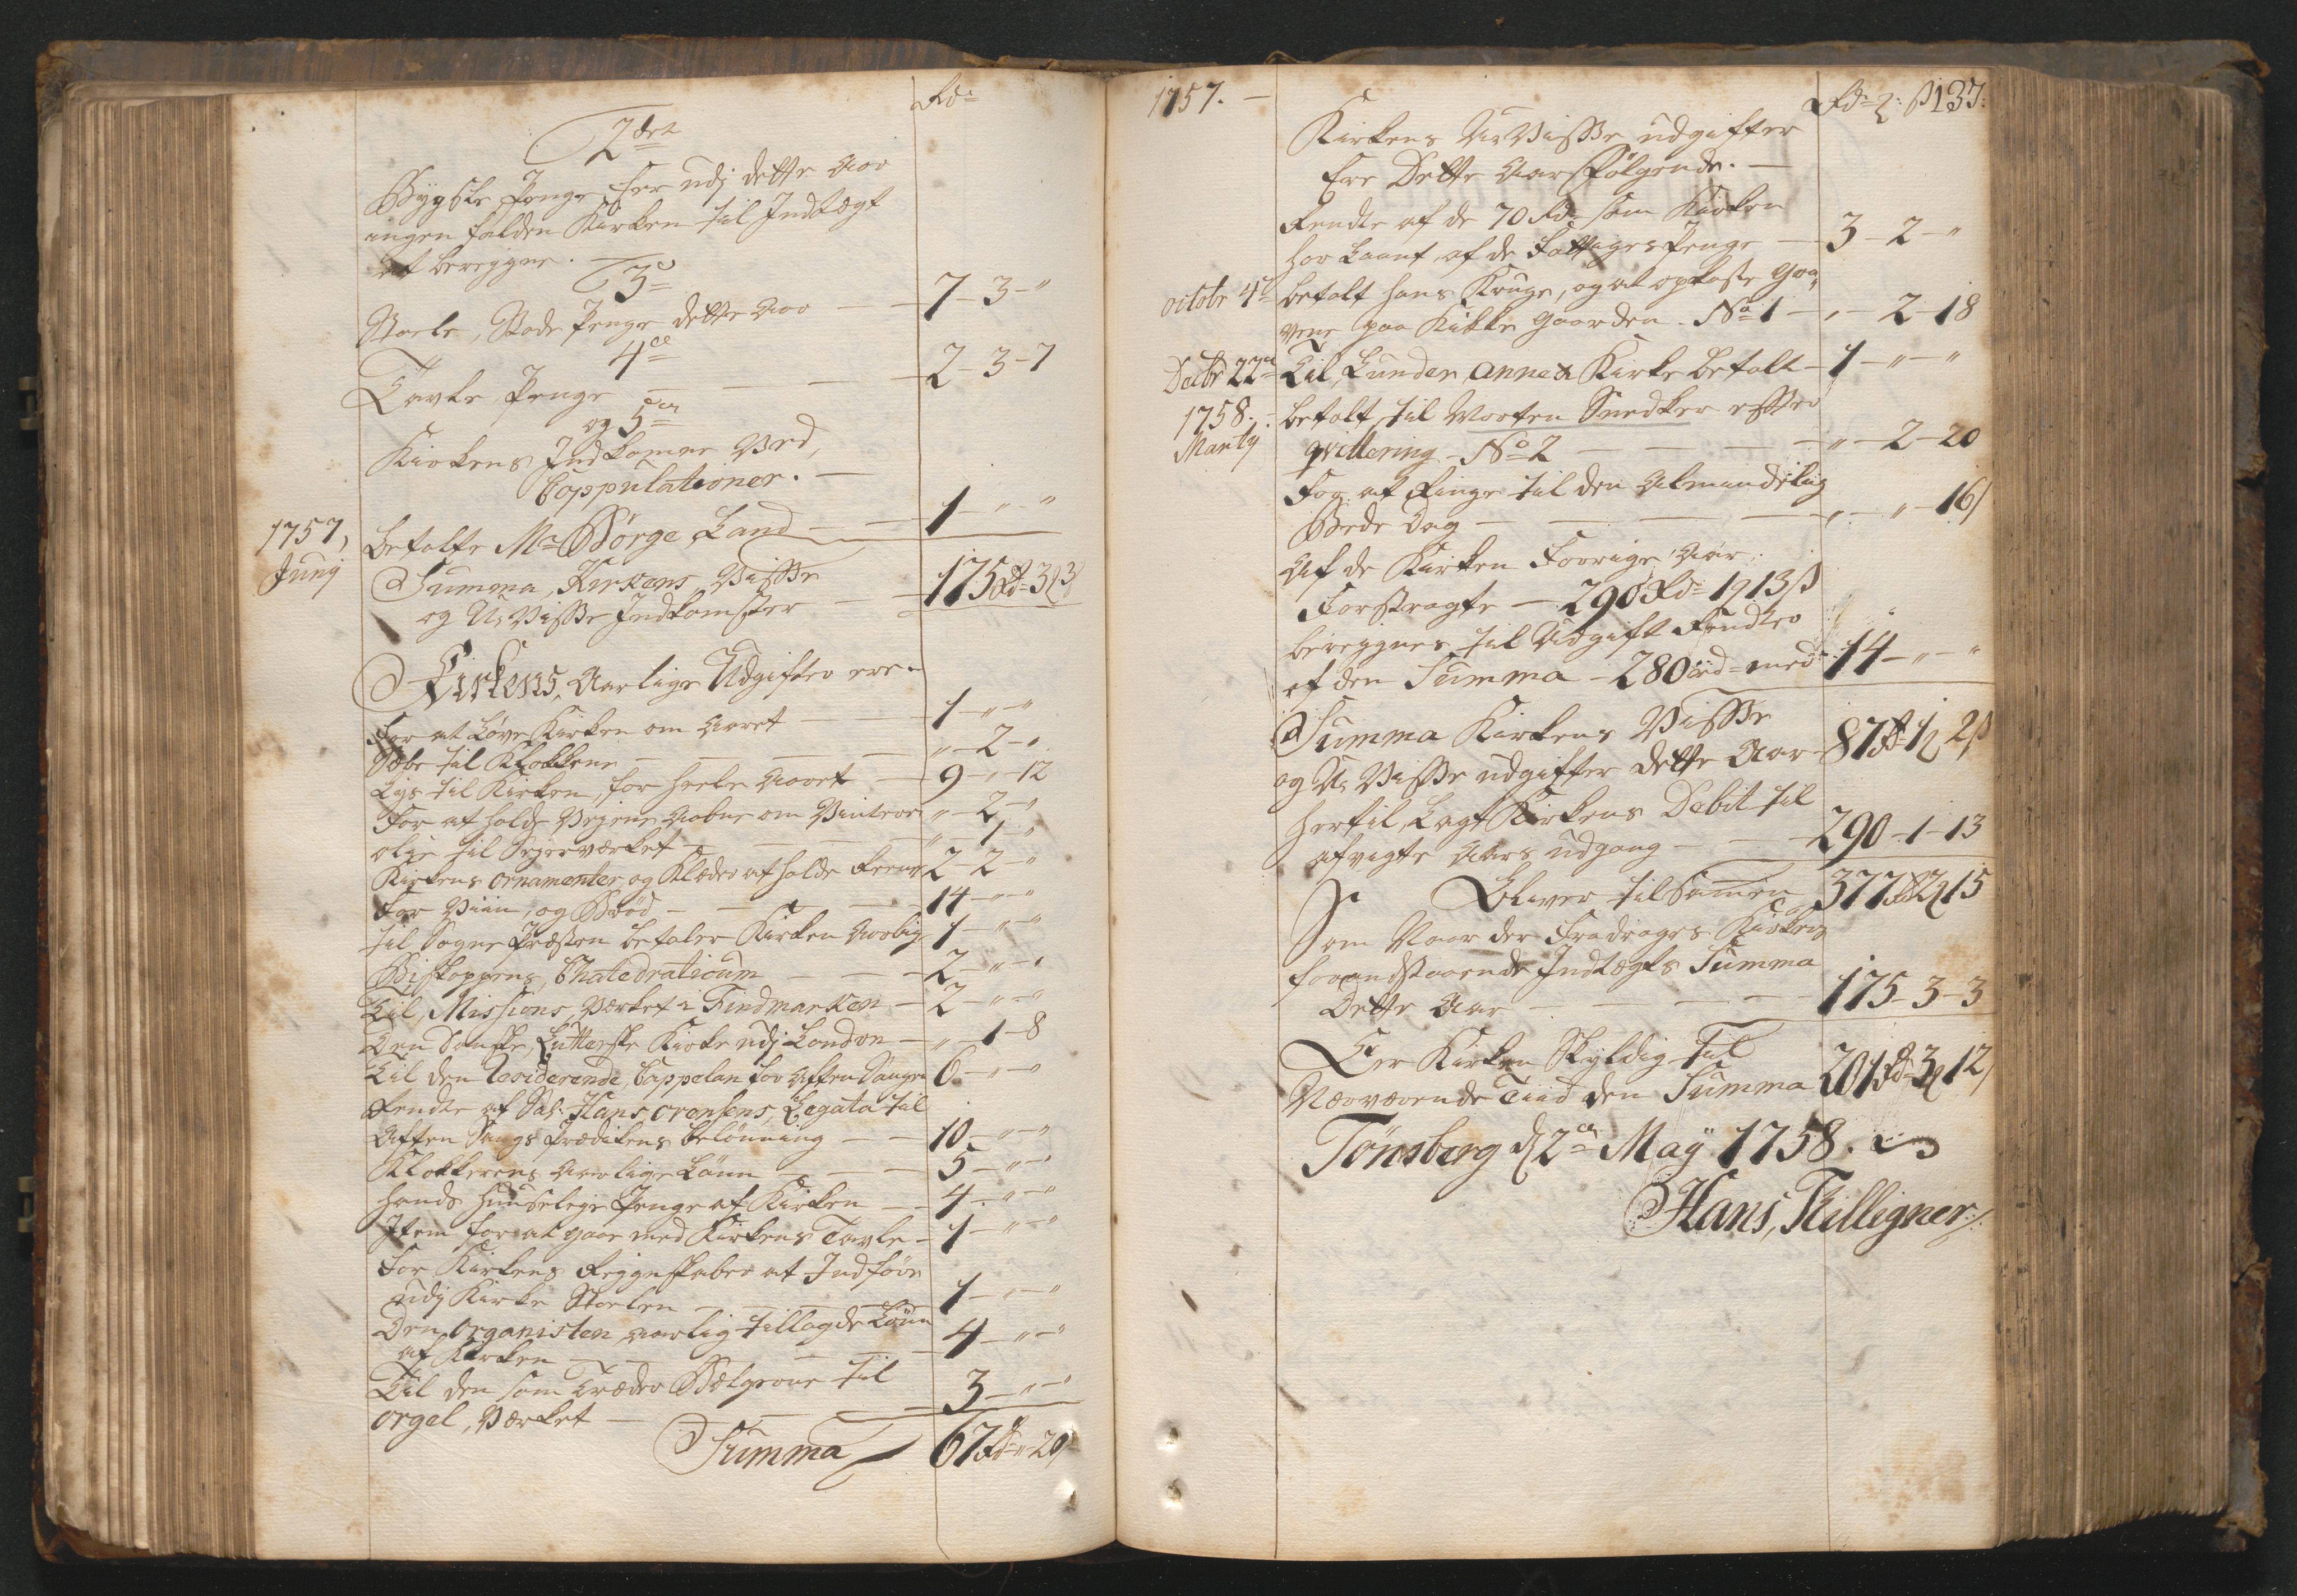 Rd:
2den
Bygsle Penge, Er udj dette Aar
ingen falden Kirken til Indtægt
at beregne.
3e
Stoele, Stade Penge dette Aar — 7 - 3 - "
4de
Tavle, Penge — — — 2 - 3 - 7
og 5te
Kirkens Indkomne Ved,
Coppulationer. —
1757, Betalte Mr Børge Land — — 1 - " - "
Junij
Summa, Kirkens, Visse
og U-Visse Indkomster — 175 Rd 3 3
Kirkens, Aarlige Udgifter ere.
For at Løve Kirken om Aaret — 1 - " - "
Sæbe til Klokkene — — " - 2 - "
Lys til Kirken, for heele Aaret — 9 - " - 12
For at holde Veyene Aabne om Vinteren " - 2 - "
olie til Seyerværket — — " - 1 - "
Kirkens ornamenter, og Klæder at holde Reene 2 - 2 - "
For Viin, og Brød — — — 14 - " - "
til Sogne Præsten betaler Kirken Aarlig 1 - " - "
Biskoppens, Chatedraticum — — 2 - " - "
Til, Missions, Værket i Findmarken — 2 - " - "
Den Danske, Lutterske Kirke udj London — " - 1 - 8
Til den Residerende, Cappelan for Aften Sange 6 - " - "
Rendte af Sal: Hans orensens, Legata til
Aften Sangs Prædikens belønning — — 10 - " - "
Klokkerens Aarlige Lønn — — 5 - " - "
hands Huuseleye Penge af Kirken — 4 - " - "
Item for at gaae med Kirkens Tavle — 1 - " - "
For Kirkens Regnskaber at Indføre
udj Kirke Stoelen — — 1 - " - "
Den organisten aarlig tillagde Lønn
af Kirken — — — 4 - " - "
Til den som træder Bælgerne til
orgel, Værket — — 3 - " - "
Summa 67 Rd " 20
1757. — Rd: 137.
Kirkens U-Visse udgifter
Ere Dette Aar Følgende. —
Rendte af de 70 Rd. som Kirken
har Laant, af de Fattiges Penge — 3 - 2 - "
octobr 4de betalt hans Kruge, og at opkaste Gra-
vene paa Kirke Gaarden. No 1 — " - 2 - 18
Decbr 22de Til, Lunder, Annex Kirke betalt — 1 - " - "
1758. betalt til Morten Snedker efter
Marty qvittering - No 2 — — " - 2 - 20
For at Ringe til den Almindelig
Bede Dag — — — " - " - 16
Af de Kirken Forrige Aar
Forstragte — 290 Rd 1 13 ß
beregnes til Udgift Rendter
af den Summa - 280 rd med 14 - " - "
Summa Kirkens Visse
og U-Visse udgifter dette Aar 87 Rd 1 2 ß
hertil, Lagt Kirkens Debit til
afvigte Aars udgang — — 290 - 1 - 13
Bliver tilsamen 377 Rd 2 15
Som Naar der Fradrages Kirkens
forandstaaende Indtægts Summa
Dette Aar — — — 175 - 3 - 3
Er Kirken Skyldig til
Nærværende Tiid den Summa 201 Rd 3 12
Tönsberg d 2en May 1758.
Hans, Killigner